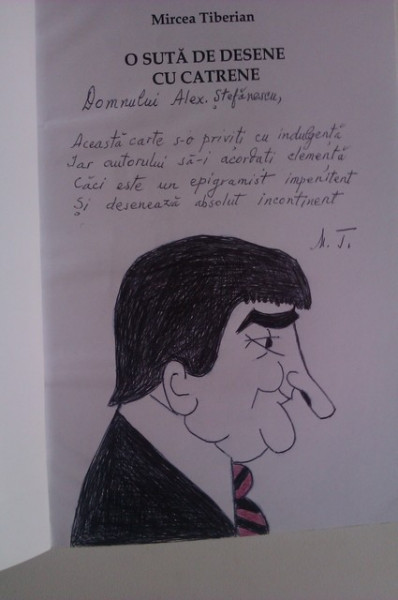 Mircea Tiberian
O SUTĂ DE DESENE
CU CATRENE
Domnului Alex. Ștefănescu,
Această carte s-o priviți cu indulgență
Iar autorului să-i acordați clemență
Căci este un epigramist impenitent
Și desenează absolut incontinent
M. T.